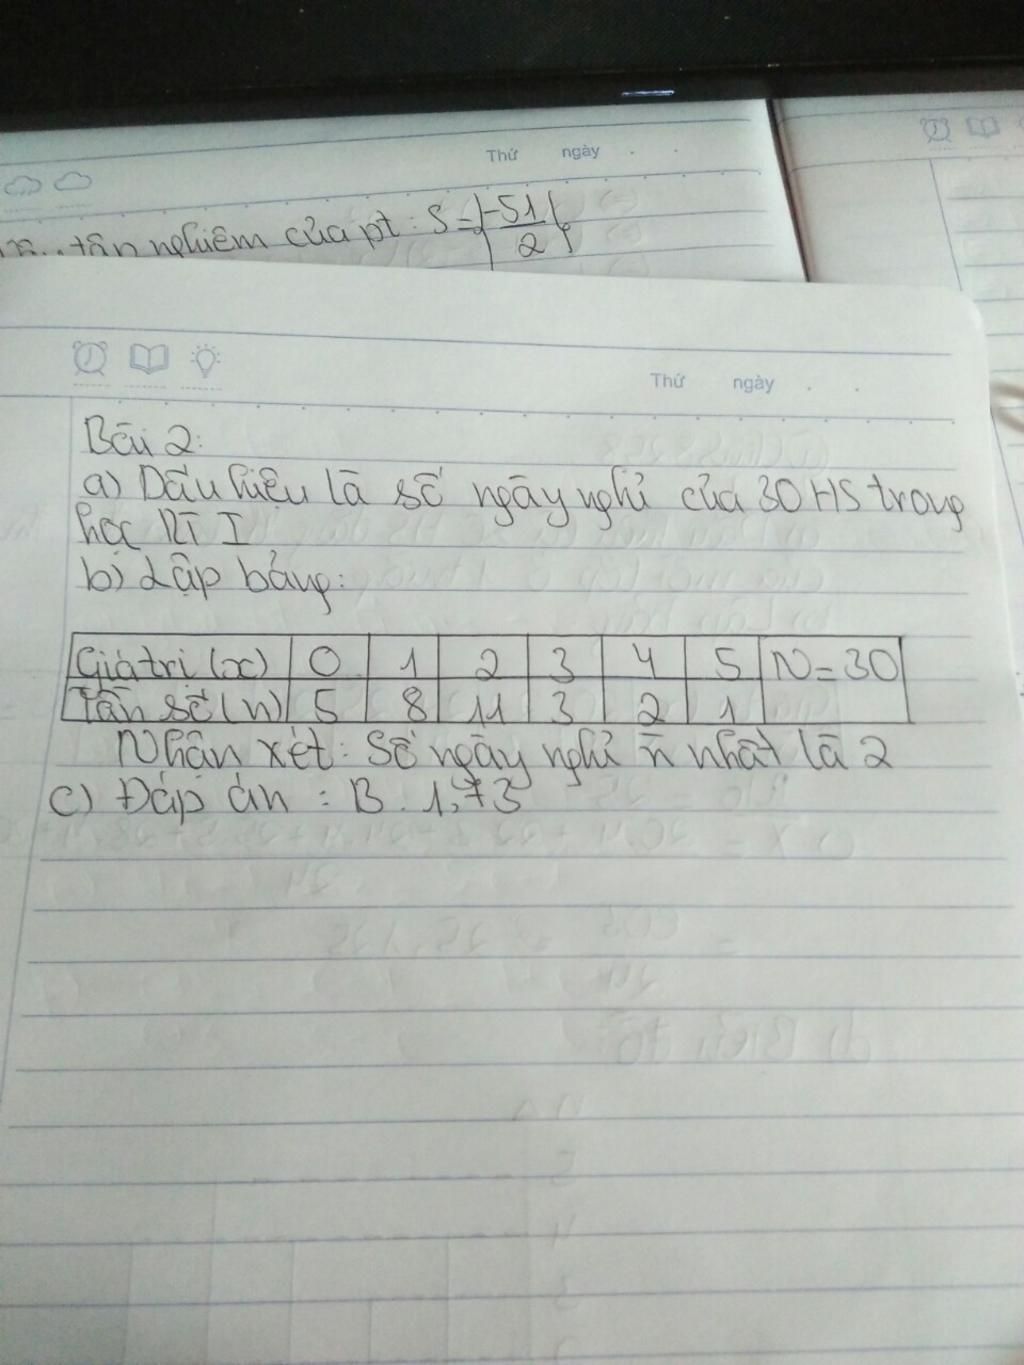 Thứ ngày . .
tân nghiêm của pt: S = {-51/2}
Thứ ngày . .
Bài 2:
a) Dấu hiệu là số ngày nghỉ của 30 HS trong
học kì I
b) Lập bảng:
Giá trị (x) 0 1 2 3 4 5 N = 30
Tần số (n) 5 8 11 3 2 1
Nhận xét: Số ngày nghỉ ñ nhất là 2
c) Đáp án : B. 1,73